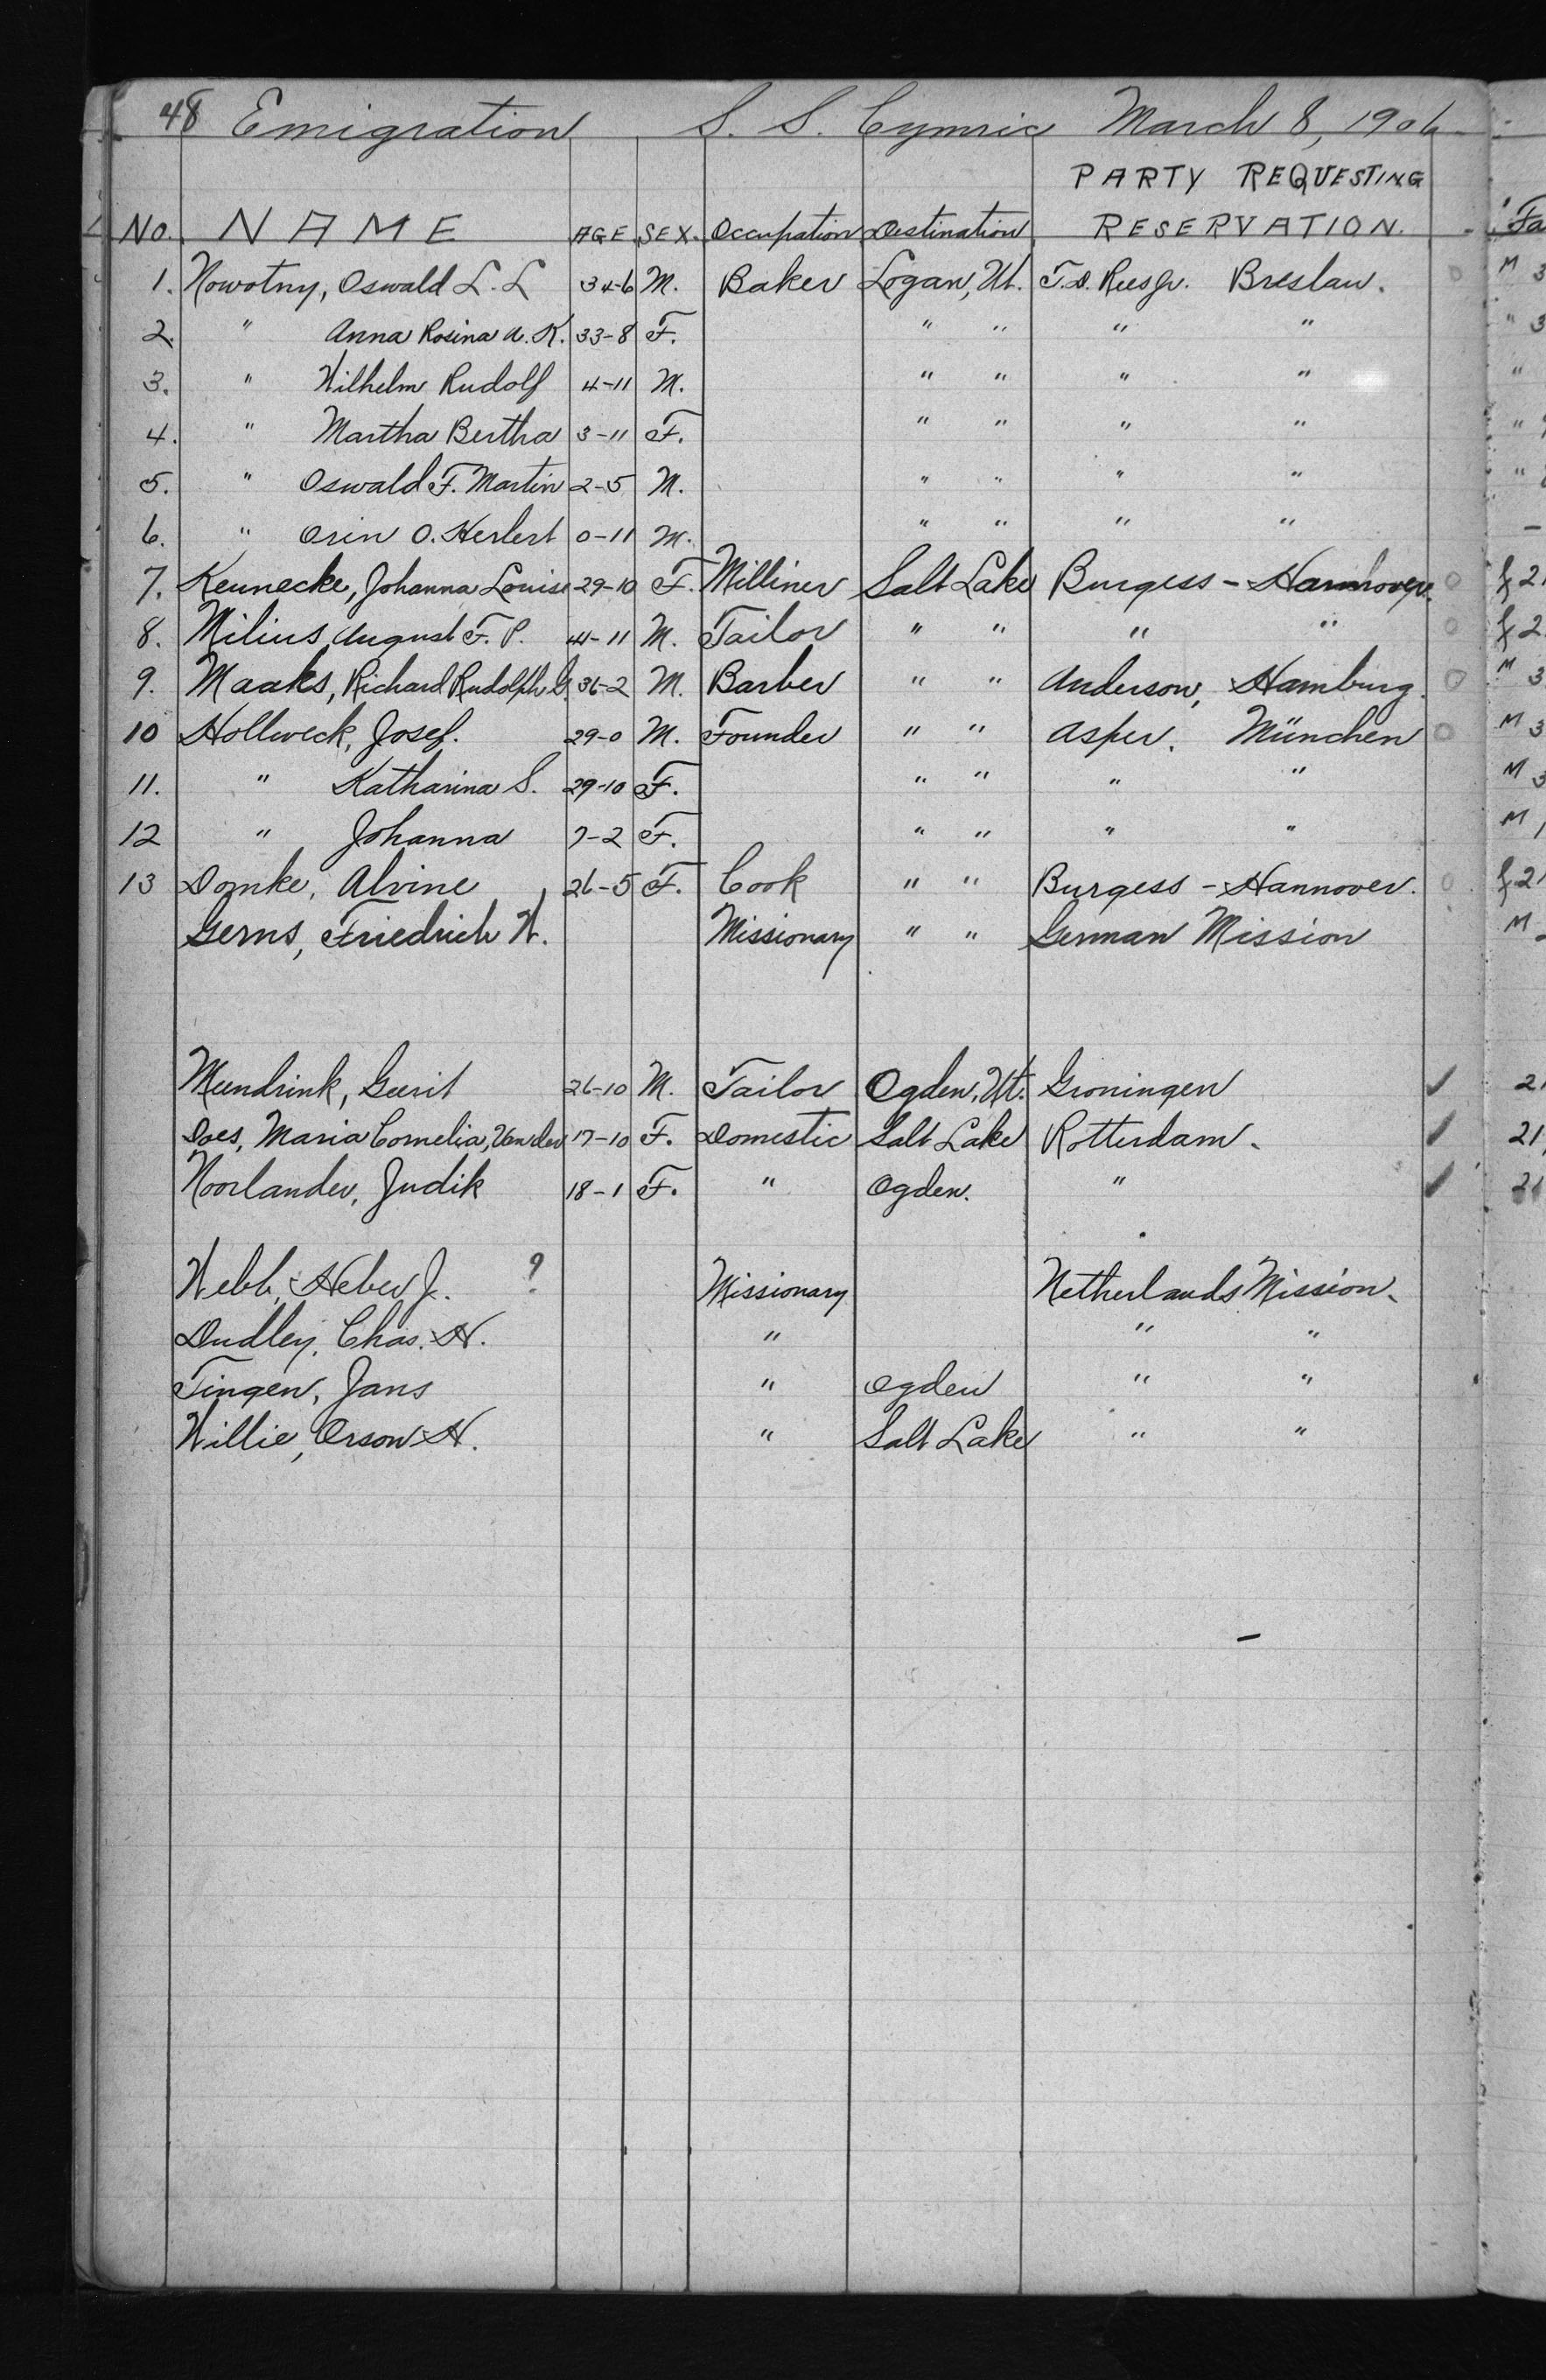 48 Emigration S. S. Cymric March 8, 1906
PARTY REQUESTING
No. NAME AGE SEX. Occupation Destination RESERVATION.
1. Nowotny, Oswald L. L 34-6 M. Baker Logan, Ut. T.D. Rees Jr. Breslau.
2. " Anna Rosina A. K. 33-8 F. " " " "
3. " Wilhelm Rudolf 4-11 M. " " " "
4. " Martha Bertha 3-11 F. " " " "
5. " Oswald F. Martin 2-5 M. " " " "
6. " Orin O. Herbert 0-11 M. " " " "
7. Keunecke, Johanna Louise 29-10 F. Milliner Salt Lake Burgess - Hannover.
8. Milius, August F. P. 44-11 M. Tailor " " " "
9. Maaks, Richard Rudolph G. 36-2 M. Barber " " Anderson, Hamburg.
10 Hollweck, Josef. 29-0 M. Founder " " Asper. München
11. " Katharina S. 29-10 F. " " " "
12 " Johanna 7-2 F. " " " "
13 Domke, Alvine 26-5 F. Cook " " Burgess - Hannover.
Gerns, Friedrich W. Missionary " " German Mission
Meendrink, Geerit 26-10 M. Tailor Ogden, Ut. Groningen ✓
Does, Maria Cornelia, Van der 17-10 F. Domestic Salt Lake Rotterdam. ✓
Noorlander, Judik 18-1 F. " Ogden. " ✓
Webb, Heber J. ? Missionary Netherlands Mission.
Dudley, Chas. H. " " "
Tingen, Jans " Ogden " "
Willie, Orson H. " Salt Lake " "